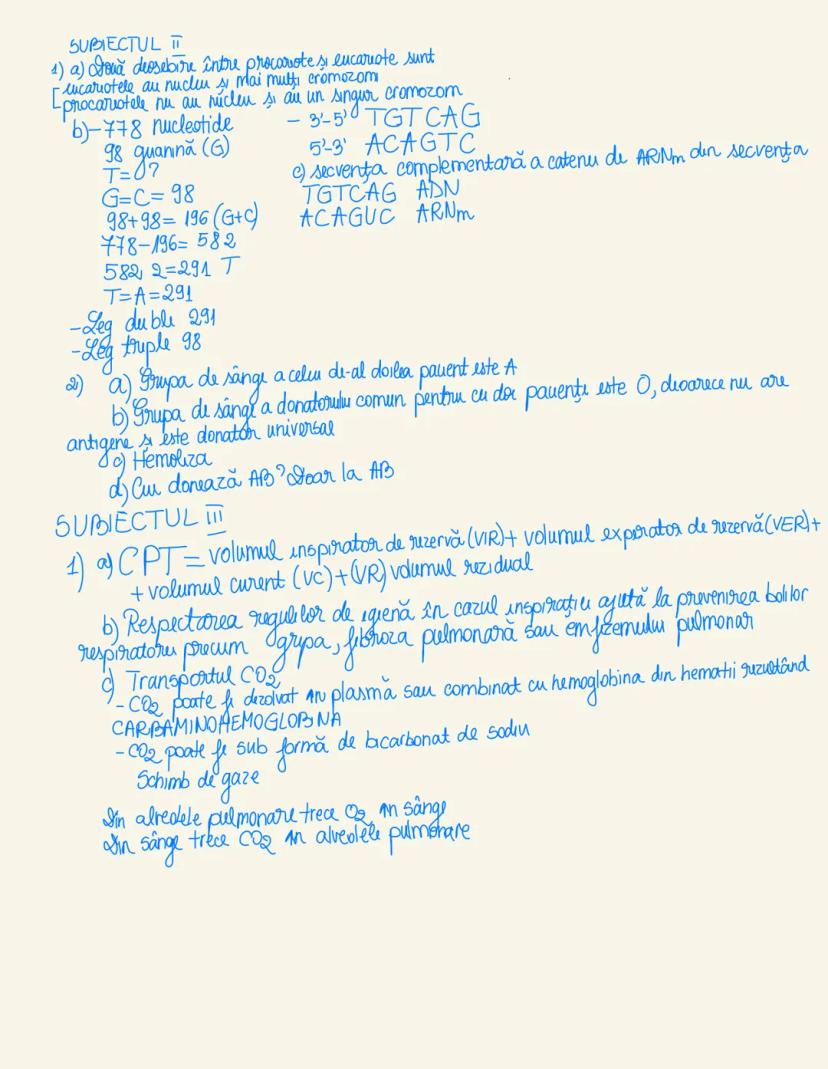 SUBIECTUL II
1) a) Două deosebire între procariote și eucariote sunt
eucariotele au nucleu și mai mulți cromozomi
procariotele nu au nucleu și au un singur cromozom
b) - 778 nucleotide
98 guanină (G)
T=?
G=C=98
98+98= 196 (G+C)
778-196= 582
582:2=291 T
T=A=291
- Leg duble 291
- Leg triple 98
- 3'-5' TGTCAG
5'-3' ACAGTC
c) secvența complementară a catenei de ARNm din secvența
TGTCAG ADN
ACAGUC ARNm
2) a) Grupa de sânge a celui de-al doilea pacient este A
b) Grupa de sânge a donatorului comun pentru cei doi pacienți este O, deoarece nu are
antigene și este donator universal
c) Hemoliza
d) Cui donează AB? Doar la AB
SUBIECTUL III
1) a) CPT = volumul inspirator de rezervă (VIR)+ volumul expirator de rezervă (VER)+
+ volumul curent (VC)+(VR) volumul rezidual
b) Respectarea regulilor de igienă în cazul inspirației ajută la prevenirea bolilor
respiratorii precum gripa, fibroza pulmonară sau emfizemului pulmonar
c) Transportul CO2
- CO2 poate fi dizolvat în plasmă sau combinat cu hemoglobina din hematii rezultând
CARBAMINOHEMOGLOBINA
- CO2 poate fi sub formă de bicarbonat de sodiu
Schimb de gaze
Din alveolele pulmonare trece O2 în sânge
Din sânge trece CO2 în alveolele pulmonare